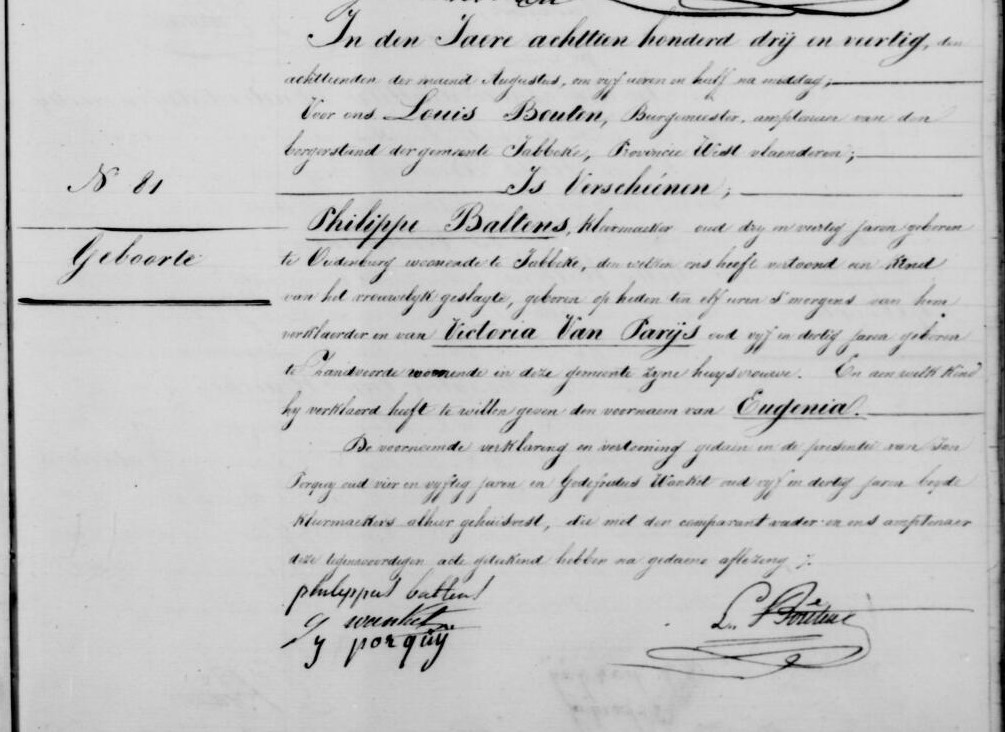 In den Jaere achttien honderd drij en veertig, den
achttienden der maend Augustus, om vijf uren en half na middag;
Voor ons Louis Bouton, Burgemeester, amptenaer van den
borgerstand der gemeente Jabbeke, Provincie West vlaenderen;
N 81
Is Verscheinen;
Philippe Baltens, kleermaeker oud drij en veertig jaren geboren
Geboorte
te Oudenburg woonende te Jabbeke, den welken ons heeft vertoond een kind
van het vrouwelyk geslagte, geboren op heden ten elf uren s'morgens van hem
verklaerder en van Victoria Van Parijs oud vyf en dertig jaren geboren
te Zandvoorde woonende in deze gemeente zyne huysvrouwe. En aen welk kind
hy verklaerd heeft te willen geven den voornaem van Eugenia.
De voornoemde verklaring en vertooning gedaen in de presentie van Jan
Porquy oud vier en vyftig jaren en Godefridus Wanket oud vyf en dertig jaren beyde
kleermaekers alhier gehuisvest, die met den comparant vader en ons amptenaer
deze tegenwoordigen acte geteekend hebben na gedaene aflezing ;
philippus battens
g wanket
y porquÿ